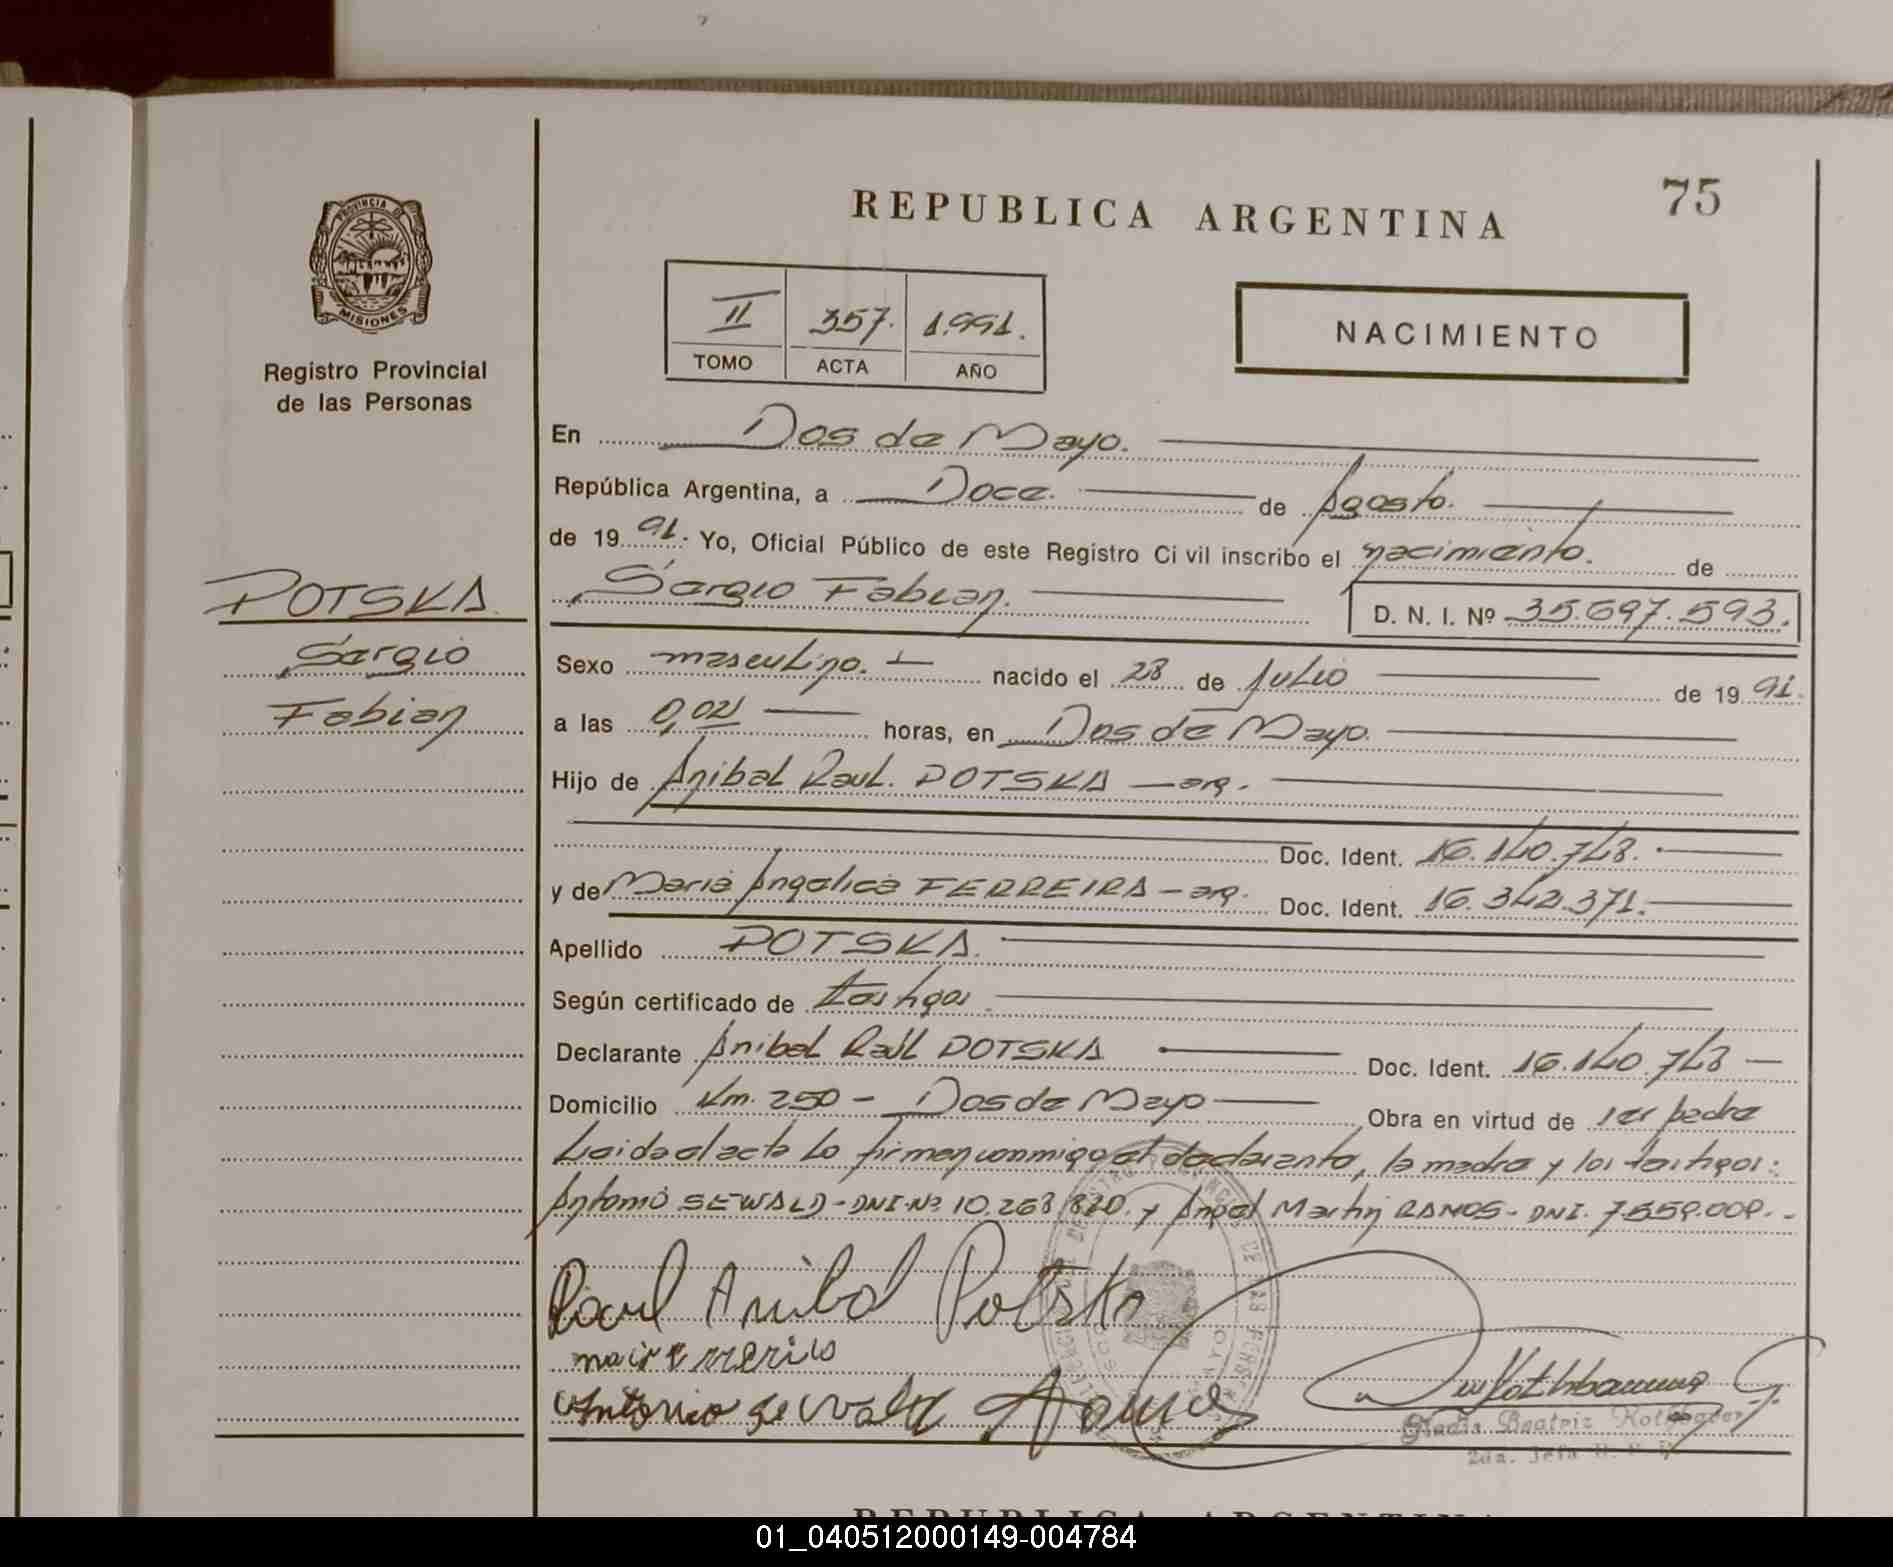 75
REPUBLICA ARGENTINA
PROVINCIA DE
MISIONES
Registro Provincial
de las Personas
II 357. 1.991.
TOMO ACTA AÑO
NACIMIENTO
POTSKA
Sergio
Fabian
En Dos de Mayo.
República Argentina, a Doce. de Agosto.
de 19 91. Yo, Oficial Público de este Registro Civil inscribo el nacimiento. de
Sergio Fabian. D. N. I. Nº 35.697.593.
Sexo masculino. nacido el 28 de Julio de 19 91.
a las 0,02 horas, en Dos de Mayo.
Hijo de Anibal Raul. POTSKA — arg.
Doc. Ident. 16.140.748.
y de Maria Angelica FERREIRA - arg. Doc. Ident. 16.342.371.
Apellido POTSKA.
Según certificado de testigos.
Declarante Anibal Raúl POTSKA Doc. Ident. 16.140.748
Domicilio Km. 250 - Dos de Mayo Obra en virtud de ser padre
Leida el acta lo firman conmigo el declarante, la madre y los testigos:
Antonio SEWALD - DNI.Nº 10.268.820. y Angel Martin RAMOS - DNI. 7.559.009.-
Raul Anibal Potska
Antonio Sewald
Gladis Beatriz
2da. Jefa
REPUBLICA ARGENTINA
01_040512000149-004784